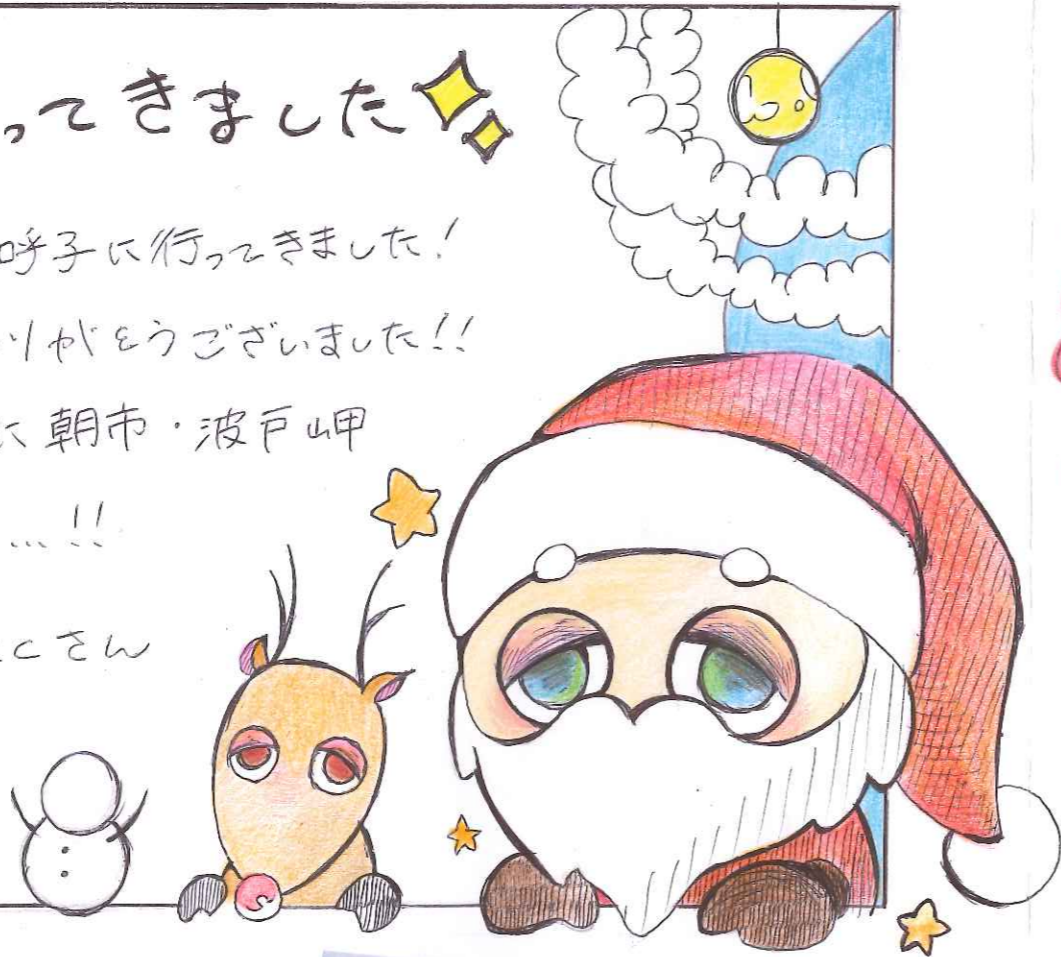 ってきました
呼子に行ってきました！
りがとうございました!!
に朝市・波戸岬
…!!
くさん